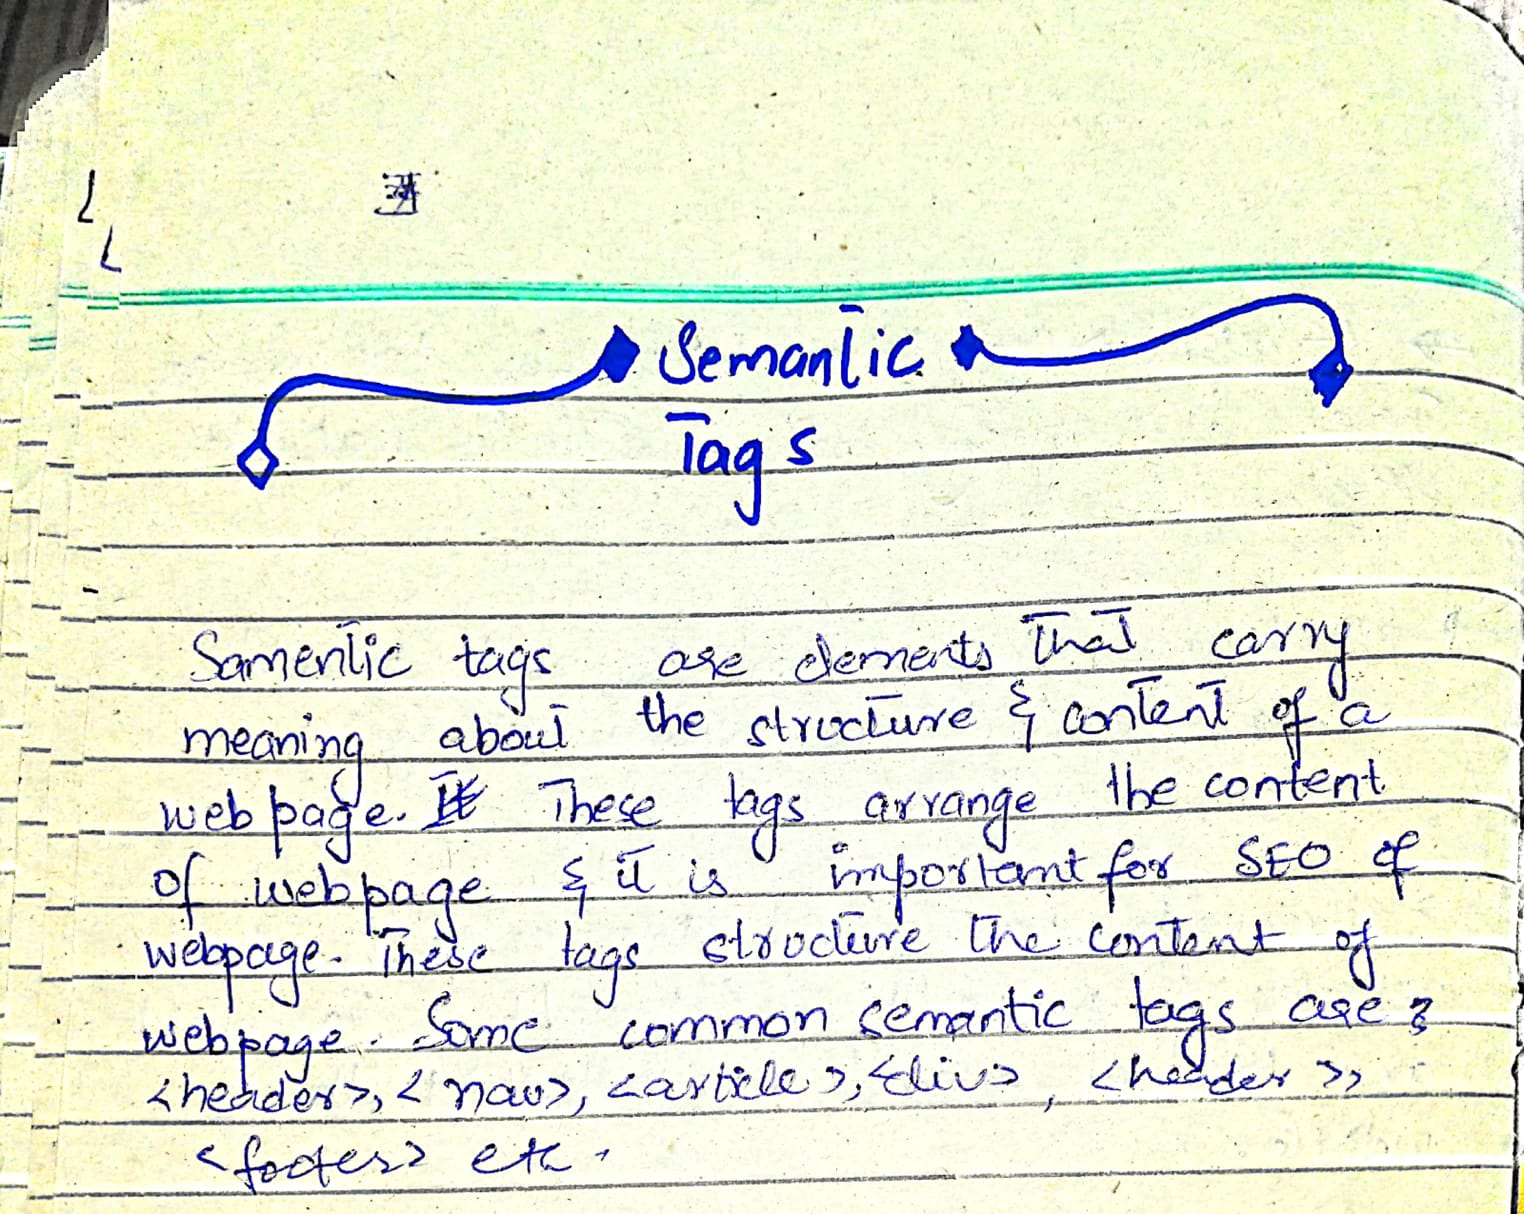 Semantic
Tags
Samentic tags are elements that carry
meaning about the structure & content of a
webpage. These tags arrange the content
of webpage & it is important for SEO of
webpage. These tags structure the content of
webpage. Some common semantic tags are :
<header>, <nav>, <article>, <div>, <header>,
<footer> etc.